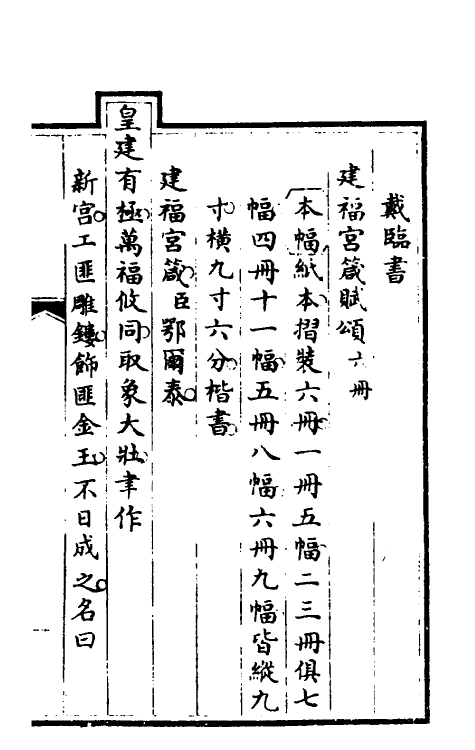 戴臨書
建福宮箴賦頌六冊
本幅紙本摺裝六冊一冊五幅二三冊俱七
幅四冊十一幅五冊八幅六冊九幅皆縱九
寸橫九寸六分楷書
建福宮箴臣鄂爾泰
皇建有極萬福攸同取象大壯聿作
新宫工匪雕鏤飾匪金玉不日成之名曰